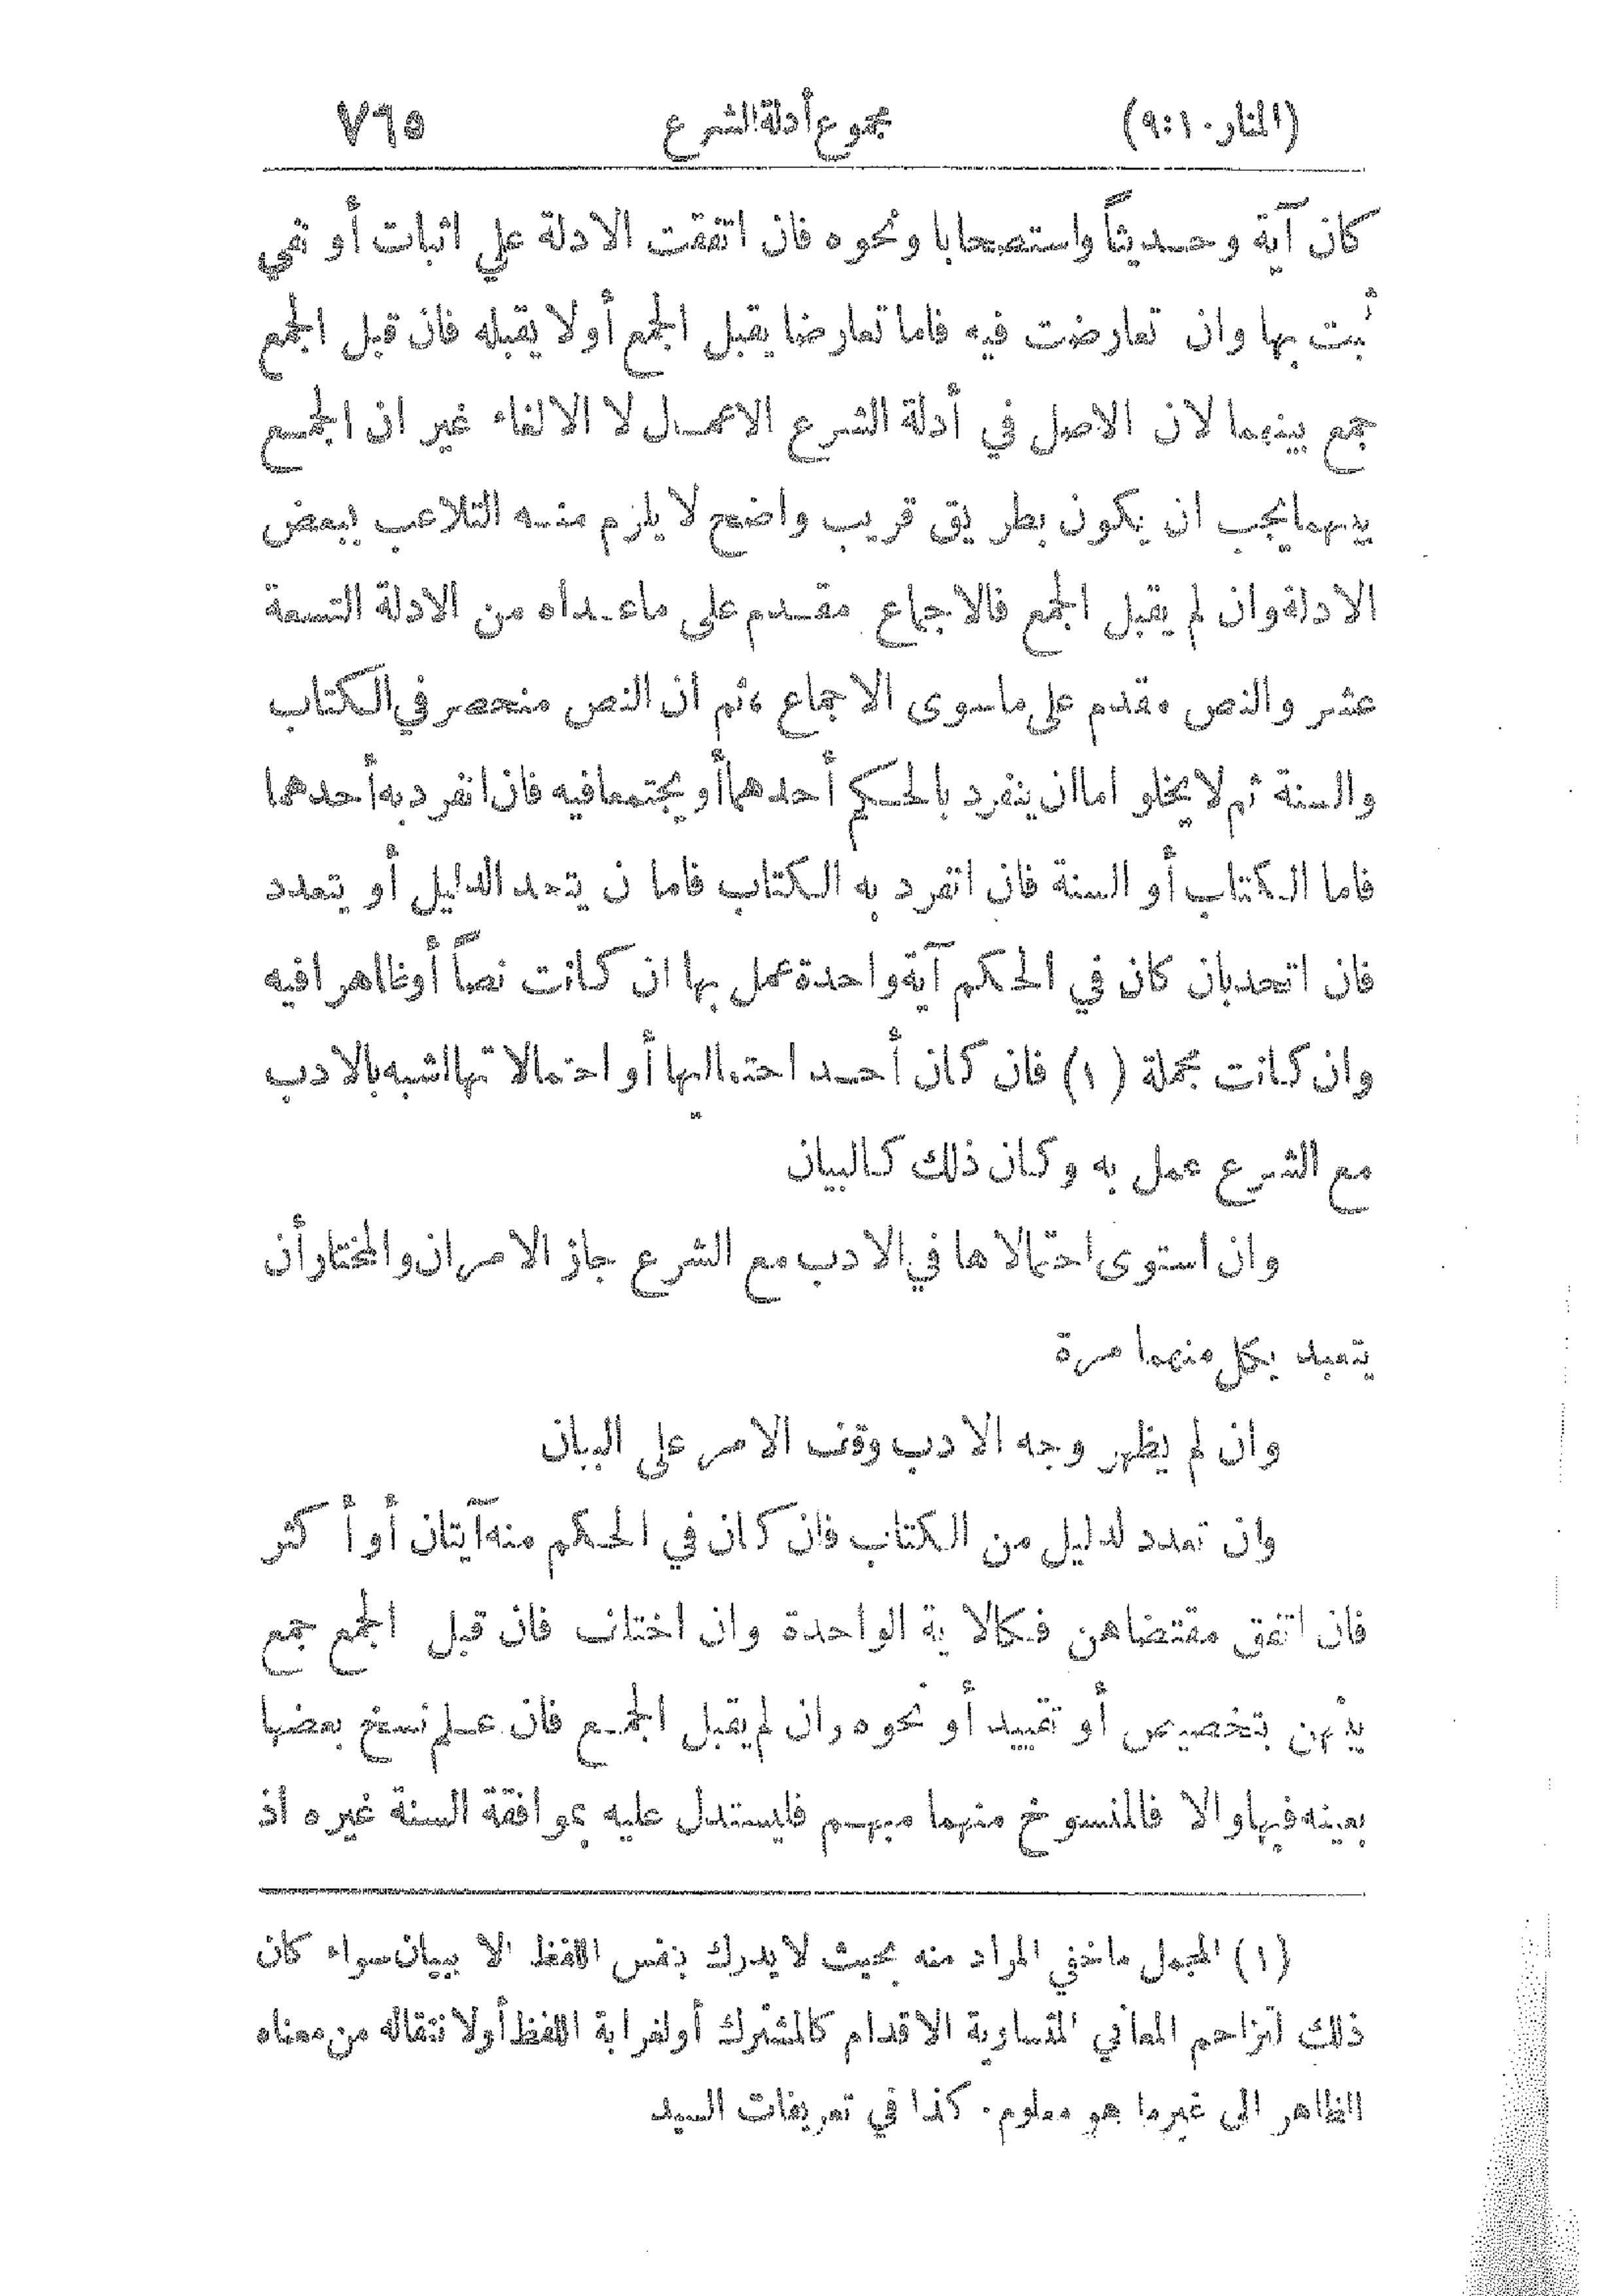 (المنار ١٠: ٩) مجموع أدلة الشرع ٧٦٥
كان آية وحديثاً واستصحابا ونحوه فان اتفقت الادلة على اثبات أو نفي
ثبت بها وان تعارضت فيه فاما تعارضا يقبل الجمع أولا يقبله فان قبل الجمع
جمع بينهما لان الاصل في أدلة الشرع الاعمال لا الالغاء غير ان الجمع
بينهما يجب ان يكون بطريق قريب واضح لا يلزم منه التلاعب ببعض
الادلة وان لم يقبل الجمع فالاجماع مقدم على ماعداه من الادلة التسعة
عشر والنص مقدم على ماسوى الاجماع ، ثم ان النص منحصر في الكتاب
والسنة ثم لا يخلو اما ان ينفرد بالحكم أحدهما أو يجتمعا فيه فان انفرد به أحدهما
فاما الكتاب أو السنة فان انفرد به الكتاب فاما ن يتحد الدليل أو يتعدد
فان اتحد بان كان في الحكم آية واحدة عمل بها ان كانت نصاً أوظاهرا فيه
وان كانت مجملة (١) فان كان أحد احتماليها أو احتمالاتها اشبه بالادب
مع الشرع عمل به وكان ذلك كالبيان
وان استوى احتمالاها في الادب مع الشرع جاز الامران والمختار أن
يتعبد بكل منهما مرة
وان لم يظهر وجه الادب وقف الامر على البيان
وان تعدد لدليل من الكتاب فان كان في الحكم منه آيتان أو أكثر
فان اتفق مقتضاهن فكالاية الواحدة وان اختلف فان قبل الجمع جمع
بينهن بتخصيص أو تقييد أو نحوه وان لم يقبل الجمع فان علم نسخ بعضها
بعينه فبها والا فالمنسوخ منهما مبهم فليستدل عليه بموافقة السنة غيره اذ
(١) المجمل ماخفي المراد منه بحيث لايدرك بنفس اللفظ الا ببيان سواء كان
ذلك لتزاحم المعاني المتساوية الاقدام كالمشترك أولغرابة اللفظ أولانتقاله من معناه
الظاهر الى غيرما هو معلوم. كذا في تعريفات السيد